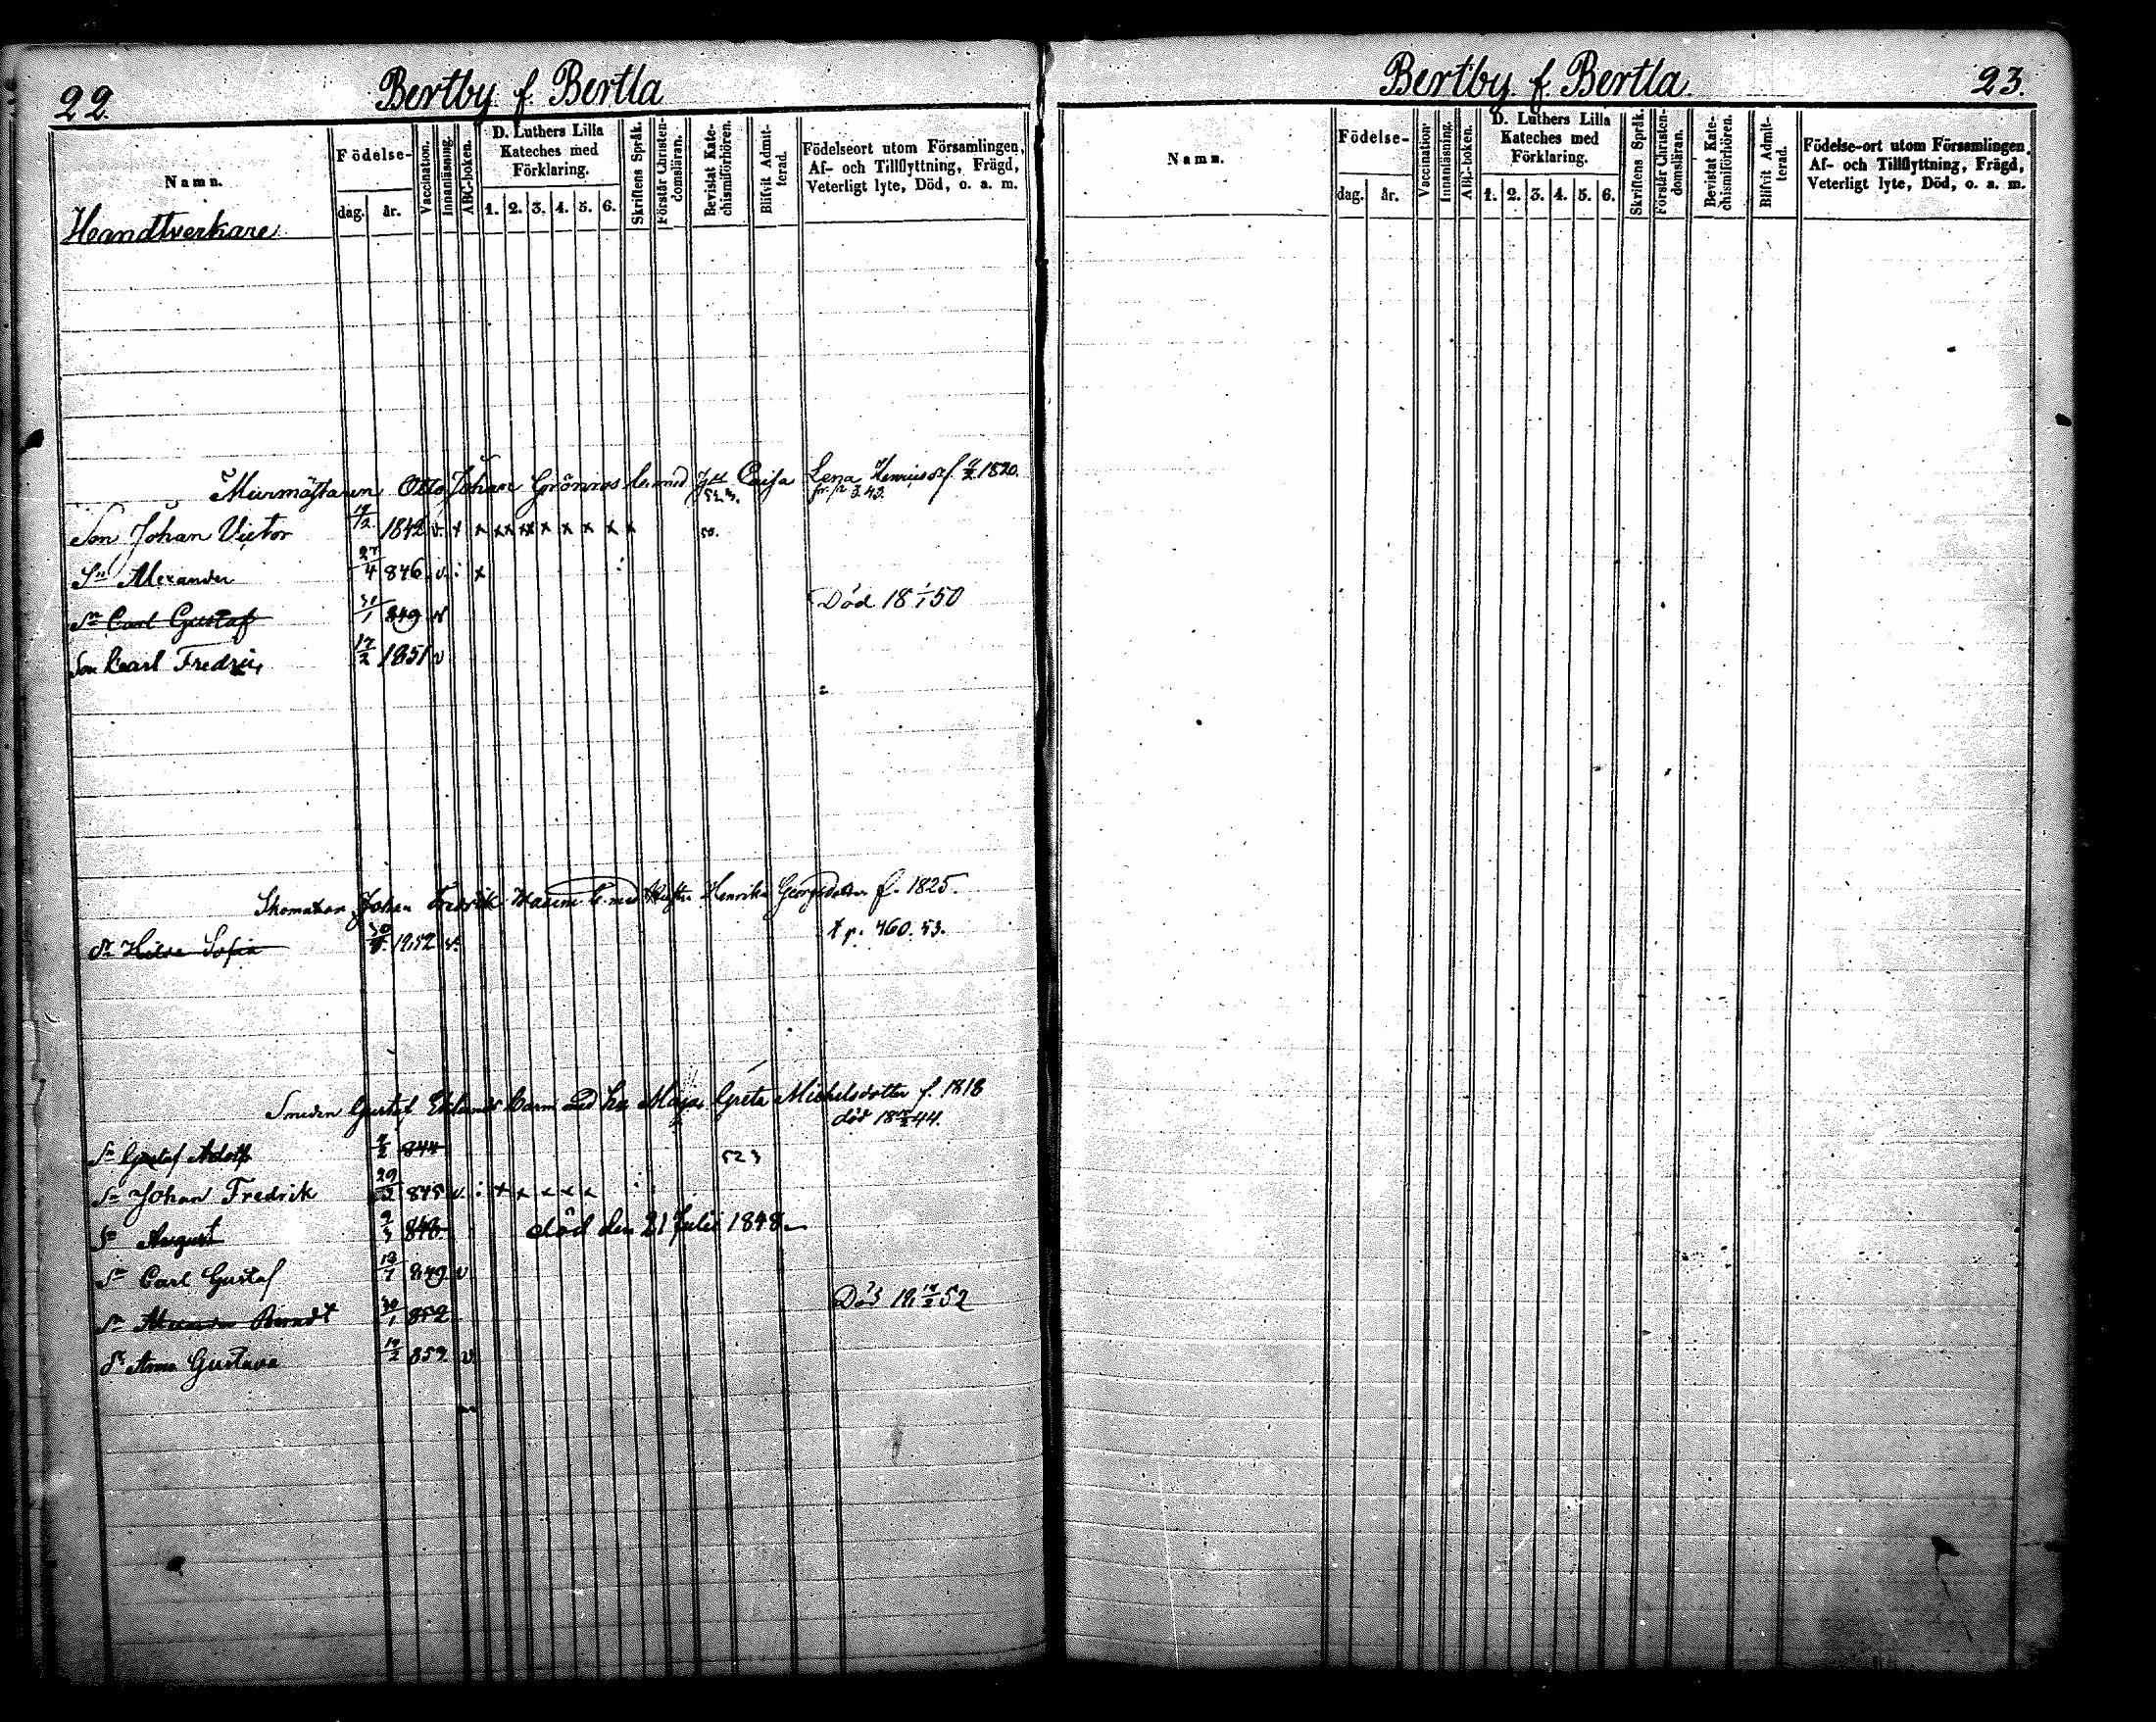 22.
Bertby f. Bertla
Namn.
Födelse-
dag. år.
Vaccination.
Innanläsning.
ABC-boken.
D. Luthers Lilla Kateches med Förklaring.
1. 2. 3. 4. 5. 6.
Skriftens Språk.
Förstår Christendomsläran.
Bevistat Katechismiförhören.
Blifvit Admitterad.
Födelseort utom Församlingen, Af- och Tillflyttning, Frägd, Veterligt lyte, Död, o. a. m.
Handtverkare
Murmästaren Otto Johan Grönroos b. med Caisa Lena Henricsd. f. 1820.
Son Johan Victor 1842 v. x x xx xx x x x x x 50.
Sn Alexander 27/4 846 v. : x :
Sn Carl Gustaf 849 v Död 18 1/1 50
Son Carl Fredric, 17/2 1851 v
Skomakar Johan Fredrik b. med Henrika Georgsdotter f. 1825.
Sofia 1852 v. p. 460. 53.
Smeden Gustaf Barn med Maja Greta Michelsdotter f. 1818
död 44.
Sn Gustaf Adolf 844 52 3
Sn Johan Fredrik 29 845 v. : x x x x x :
Sn August 848 död den 21 Julii 1848
Sn Carl Gustaf 849 v
Sn Berndt 852 Död 52
Dr Anna Gustava 852 v
Bertby f Bertla
23.
Namn.
Födelse-
dag. år.
Vaccination.
Innanläsning.
ABC-boken.
D. Luthers Lilla Kateches med Förklaring.
1. 2. 3. 4. 5. 6.
Skriftens Språk.
Förstår Christendomsläran.
Bevistat Katechismiförhören.
Blifvit Admitterad.
Födelse-ort utom Församlingen, Af- och Tillflyttning, Frägd, Veterligt lyte, Död, o. a. m.